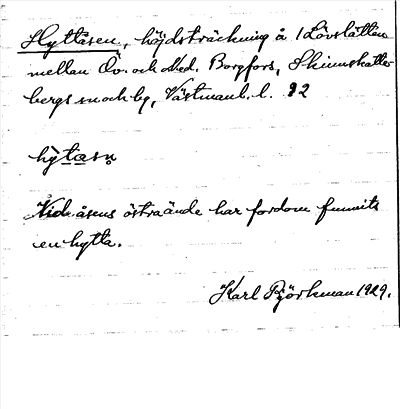 Hyttåsen, höjdsträckning å 1 Lövslätten
mellan Öv. och Ned. Borgfors, Skinnskatte-
bergs sn och bg, Västmanl. l. 92
hỳtåsṇ
Vid åsens östra ände har fordom funnits
en hytta.
Karl Björkman 1929.